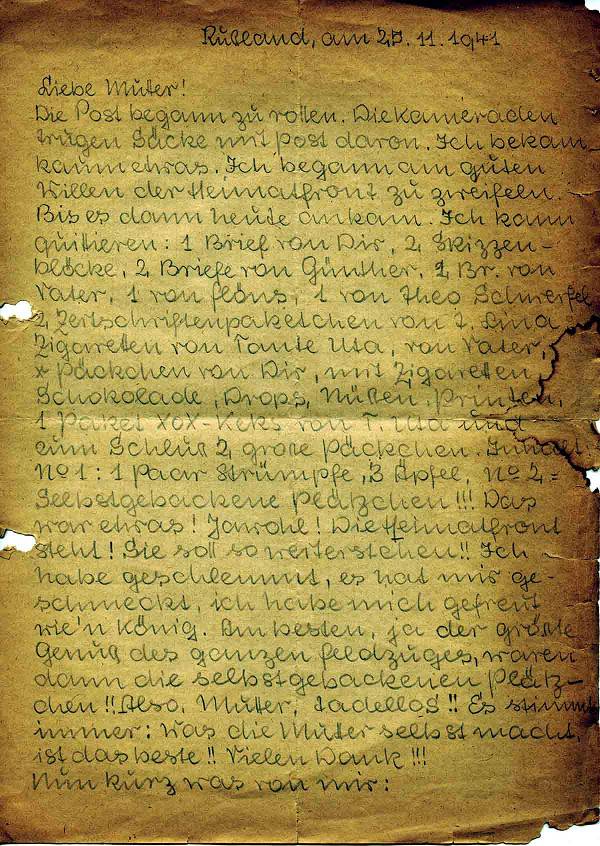 Rußland, am 25.11.1941
Liebe Mutter!
Die Post begann zu rollen. Die Kameraden
trugen Säcke mit Post daron. Ich bekam
kaum etwas. Ich begann am guten
Willen der Heimatfront zu zweifeln.
Bis es dann heute ankam. Ich kann
quittieren: 1 Brief von Dir, 2 Skizzen-
blöcke, 2 Briefe von Günther, 2 Br. von
Vater, 1 von Klöns, 1 von Theo
2 Zeitschriftenpaketchen von
Zigareten von Tante Uta, von Vater,
Päckchen von Dir, mit Zigareten
Schokolade, Drops, Nüßen, Printen,
1 Paket XOX-Keks von T. Uta und
zum Schluß 2 große Päckchen. Inhalt
No 1: 1 Paar Strümpfe, 3 Äpfel, No 2 =
Selbstgebackene Plätzchen!!! Das
war etwas! Jawohl! Die Heimatfront
steht! Sie soll so weiterstehen!! Ich
habe geschlemmt, es hat mir ge-
schmeckt, ich habe mich gefreut
wie'n König. Am besten, ja der größte
Genuß des ganzen Feldzuges, waren
dann die selbstgebackenen Plätz-
chen!! Also, Mutter, tadellos!! Es stimmt
immer: Was die Mutter selbst macht,
ist das beste!! Vielen Dank!!!
Nun kurz was von mir: